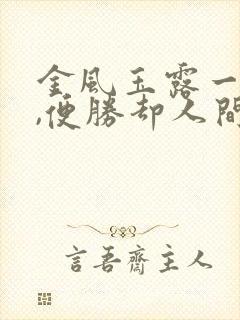 金風玉露一
,便勝却人間
言吾齋主人